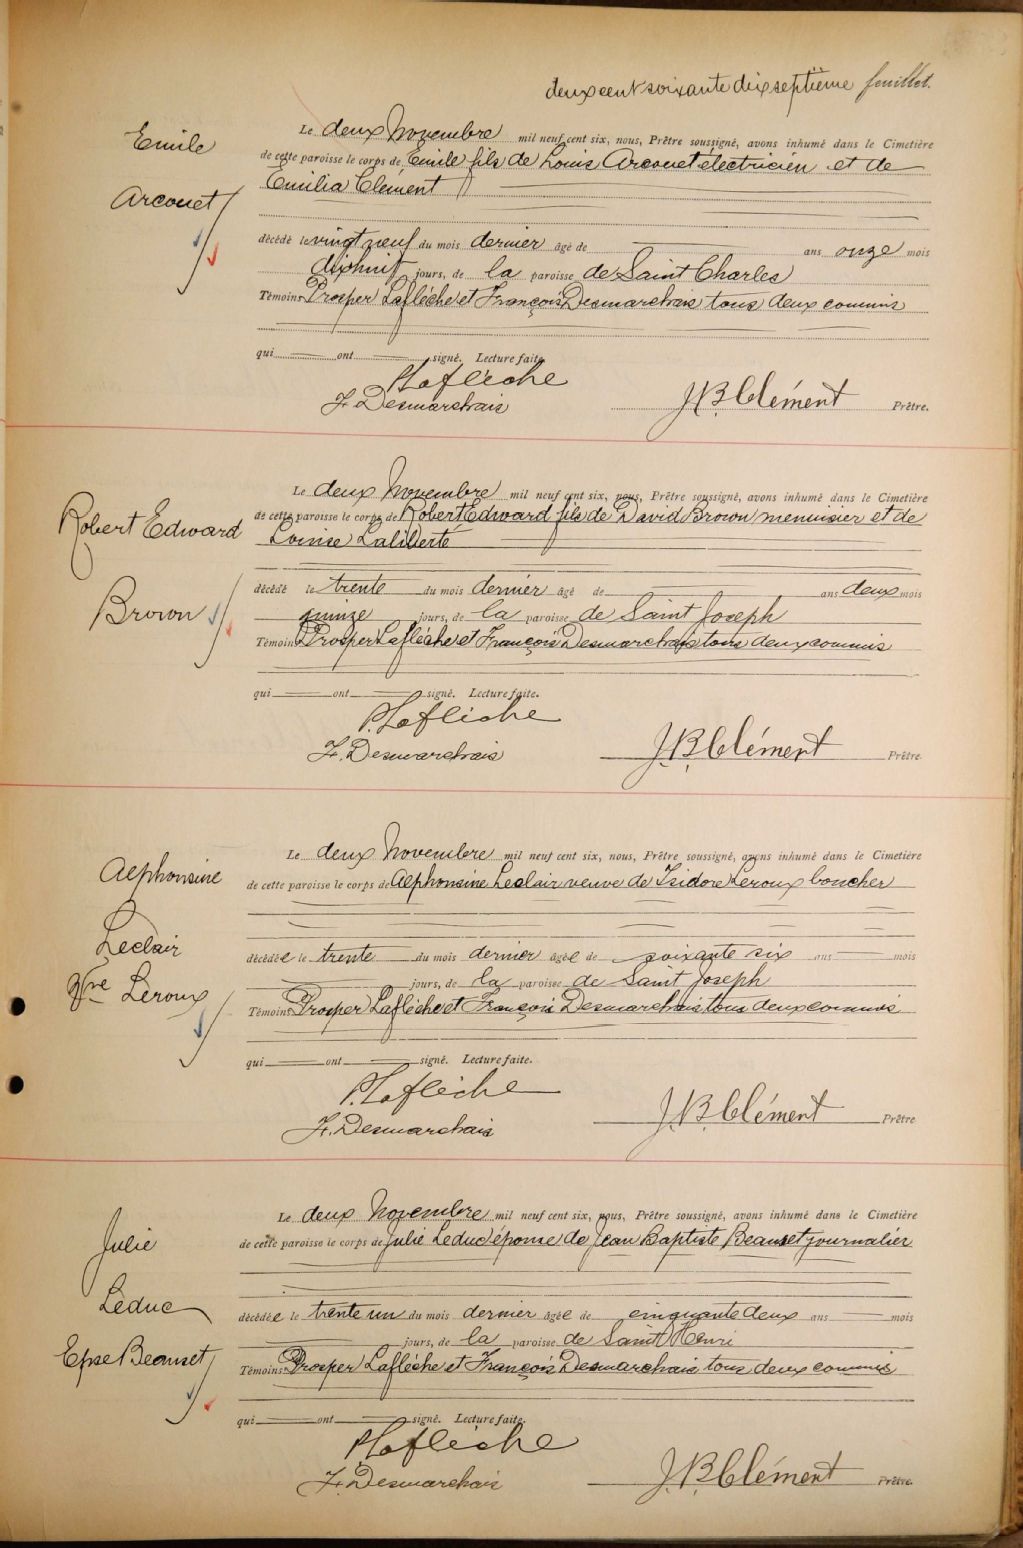 deux cent soixante dix septième feuillet.
Emile
Arcouet
Le deux Novembre mil neuf cent six, nous, Prêtre soussigné, avons inhumé dans le Cimetière
de cette paroisse le corps de Emile fils de Louis Arcouet électricien et de
Emilia Clément
décédé le vingt neuf du mois dernier âgé de ans onze mois
dix huit jours, de la paroisse de Saint Charles
Témoins Prosper Laflèche et François Desmarchais tous deux commis
qui ont signé. Lecture faite.
P. Laflèche
F. Desmarchais
J. B. Clément Prêtre.
Robert Edward
Brown
Le deux Novembre mil neuf cent six, nous, Prêtre soussigné, avons inhumé dans le Cimetière
de cette paroisse le corps de Robert Edward fils de David Brown menuisier et de
Louise Laliberté
décédé le trente du mois dernier âgé de ans deux mois
quinze jours, de la paroisse de Saint Joseph
Témoins Prosper Laflèche et François Desmarchais tous deux commis
qui ont signé. Lecture faite.
P. Laflèche
F. Desmarchais
J. B. Clément Prêtre.
Alphonsine
Leclair
Vve Leroux
Le deux Novembre mil neuf cent six, nous, Prêtre soussigné, avons inhumé dans le Cimetière
de cette paroisse le corps de Alphonsine Leclair veuve de Isidore Leroux boucher
décédée le trente du mois dernier âgée de soixante six ans mois
jours, de la paroisse de Saint Joseph
Témoins Prosper Laflèche et François Desmarchais tous deux commis
qui ont signé. Lecture faite.
P. Laflèche
F. Desmarchais
J. B. Clément Prêtre
Julie
Leduc
Epse Beauset
Le deux Novembre mil neuf cent six, nous, Prêtre soussigné, avons inhumé dans le Cimetière
de cette paroisse le corps de Julie Leduc épouse de Jean Baptiste Beauset journalier
décédée le trente un du mois dernier âgée de cinquante deux ans mois
jours, de la paroisse de Saint Henri
Témoins Prosper Laflèche et François Desmarchais tous deux commis
qui ont signé. Lecture faite.
P. Laflèche
F. Desmarchais
J. B. Clément Prêtre.